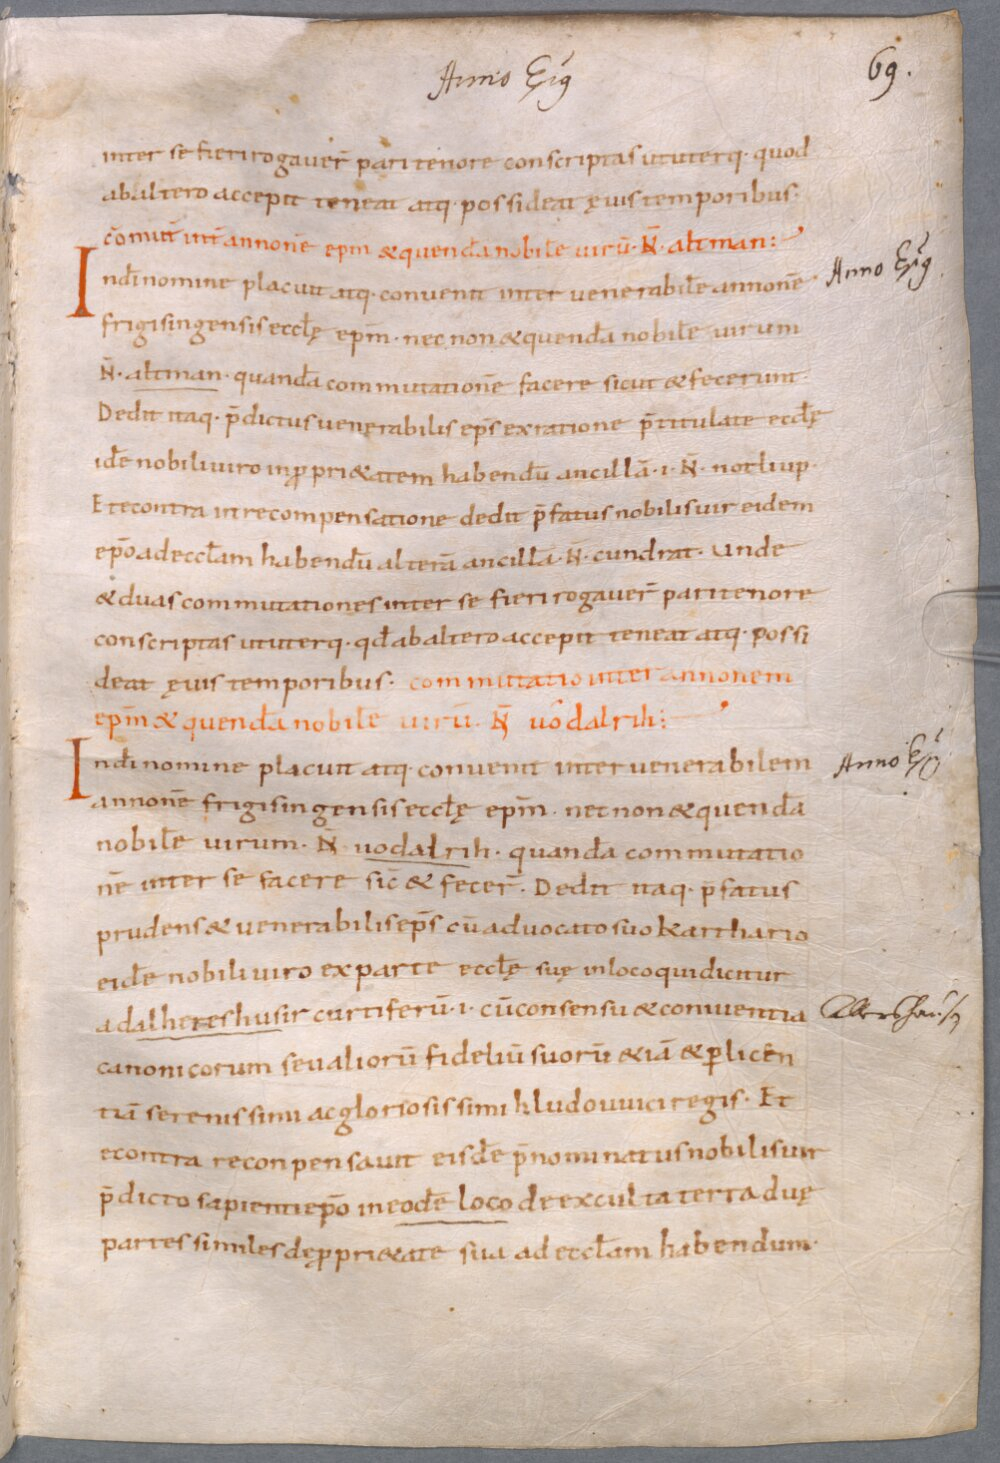 Anno
69.
inter se fieri rogauer̄ pari tenore conscriptas ut uterq· quod
ab altero accepit teneat atq· possideat ęuis temporibus·
cōmut̄ int̄ annonē ep̄m &quendā nobilē uirū· N̄· altman:
Anno
Indīnomine placuit atq· conuenit inter uenerabilē annonē
frigisingensis eccłę ep̄m· nec non &quendā nobilē uirum
N̄· altman· quandā commutationē facere sicut &fecerunt·
Dedit itaq· p̄dictus uenerabilis ep̄s exratione p̄titulate eccłę
idē nobili uiro in ꝓpri&atem habendū ancillā·i· N̄· notliup·
Et econtra in recompensatione dedit p̄fatus nobilis uir eidem
ep̄o ad eccłam habendū alterā ancillā· N̄· cundrat· Unde
&duas commutationes inter se fieri rogauer̄ pari tenore
conscriptas ut uterq· qđ ab altero accepit teneat atq· possi
deat ęuis temporibus· commutatio inter annonem
ep̄m &quendā nobilē uirū· N̄ uodalrih:
Anno
Indīnomine placuit atq· conuenit inter uenerabilem
annonē frigisingensis eccłę ep̄m· nec non &quendā
nobilē uirum· N̄· uodalrih· quandā commutatio
nē inter se facere sic̄ & fecer̄· Dedit itaq· p̄fatus
prudens & uenerabilis ep̄s cū aduocato suo Karthario
eidē nobili uiro ex parte eccłę suę in loco qui dicitur
adalhereshusir curtiferū·i· cū consensu & coniuentia
canonicorum seu aliorū fideliū suorū &iā &ꝑ licen
tiā serenissimi ac gloriosissimi hludouuici regis· Et
econtra reconpensauit eisdē p̄nominatus nobilis uir
p̄dicto sapienti ep̄o in eodē loco de exculta terra duę
partes similes dę ꝓpri&ate sua ad eccłam habendum·